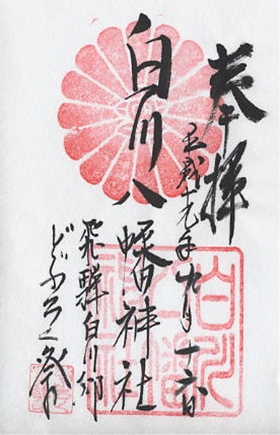 奉拝
平成十九年九月十六日
白川八幡神社
飛騨白川郷
どぶろく祭り